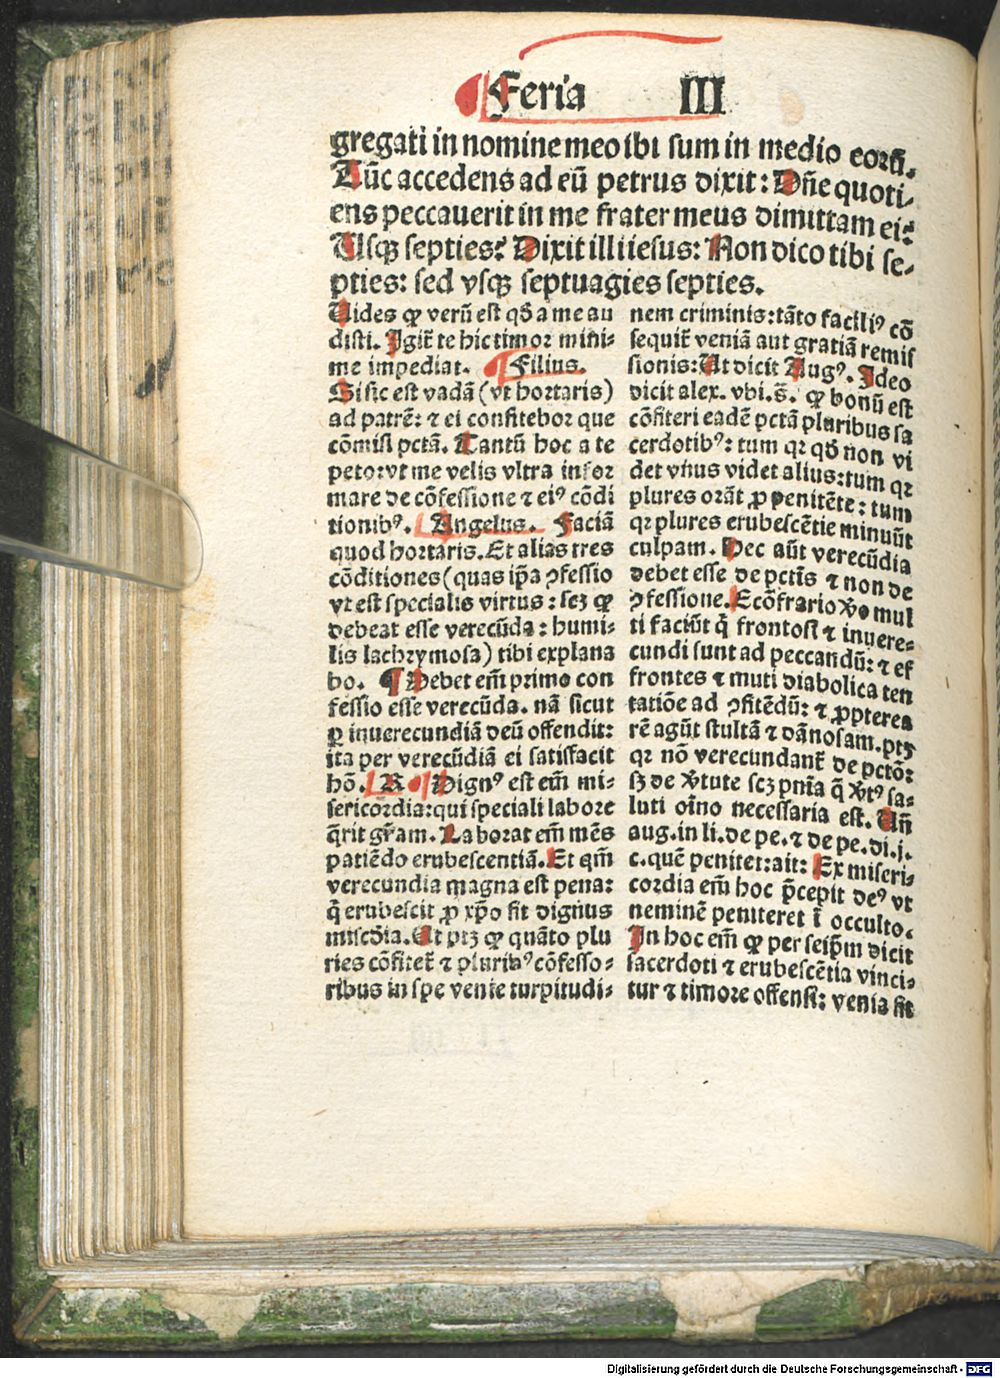 Feria III
gregati in nomine meo ibi sum in medio eorū.
Tūc accedens ad eū petrus dixit: Dn̄e quoti-
ens peccauerit in me frater meus dimittam ei?
Usqꝫ septies? Dixit illi iesus: Non dico tibi se-
pties: sed vsqꝫ septuagies septies.
Uides ꝙ verū est qd̄ a me au
disti. Igit᷑ te hic timor mini-
me impediat. Filius.
Si sic est vadā (vt hortaris)
ad patrē: ⁊ ei confitebor que
cōmisi pctā. Tantū hoc a te
peto: vt me velis vltra infor
mare de cōfessione ⁊ eiꝰ cōdi
tionibꝰ. Angelus. Faciā
quod hortaris. Et alias tres
cōditiones (quas ip̄a ꝯfessio
vt est specialis virtus: scꝫ ꝙ
debeat esse verecūda: humi-
lis lachrymosa) tibi explana
bo. Debet em̄ primo con
fessio esse verecūda. nā sicut
ꝑ inuerecundiā deū offendit:
ita per verecūdiā ei satisfacit
hō. R Dignꝰ est em̄ mi-
sericordia: qui speciali labore
q̄rit gr̄am. Laborat em̄ mēs
patiēdo erubescentiā. Et qm̄
verecundia magna est pena:
q̄ erubescit ꝓ xp̄o fit dignus
miscd̄ia. Et ptꝫ ꝙ quāto plu
ries cōfitet᷑ ⁊ pluribꝰ cōfesso-
ribus in spe venie turpitudi-
nem criminis: tāto faciliꝰ cō
sequit᷑ veniā aut gratiā remis
sionis: Ut dicit Augꝰ. Ideo
dicit alex. vbi. s̄. ꝙ bonū est
cōfiteri eadē pctā pluribus sa
cerdotibꝰ: tum qꝛ qd̄ non vi
det vnus videt alius: tum qꝛ
plures orāt ꝓ penitēte: tum
qꝛ plures erubescētie minuūt
culpam. Hec aūt verecūdia
debet esse de pctīs ⁊ non de
ꝯfessione. Ecōtrario v̄o mul
ti faciūt q̄ frontosi ⁊ inuere-
cundi sunt ad peccandū: ⁊ ef
frontes ⁊ muti diabolica ten
tatiōe ad ꝯfitēdū: ⁊ ꝓpterea
rē agūt stultā ⁊ dānosam. ptꝫ
qꝛ nō verecundant᷑ de pctō:
sꝫ de v̄tute scꝫ pn̄ia q̄ v̄tꝰ sa-
luti oīno necessaria est. Un̄
aug. in li. de pe. ⁊ de pe. di. j.
c. quē penitet: ait: Ex miseri-
cordia em̄ hoc p̄cepit deꝰ vt
neminē peniteret ī occulto.
In hoc em̄ ꝙ per seip̄m dicit
sacerdoti ⁊ erubescētia vinci-
tur ⁊ timore offensi: venia fit
Digitalisierung gefördert durch die Deutsche Forschungsgemeinschaft - DFG